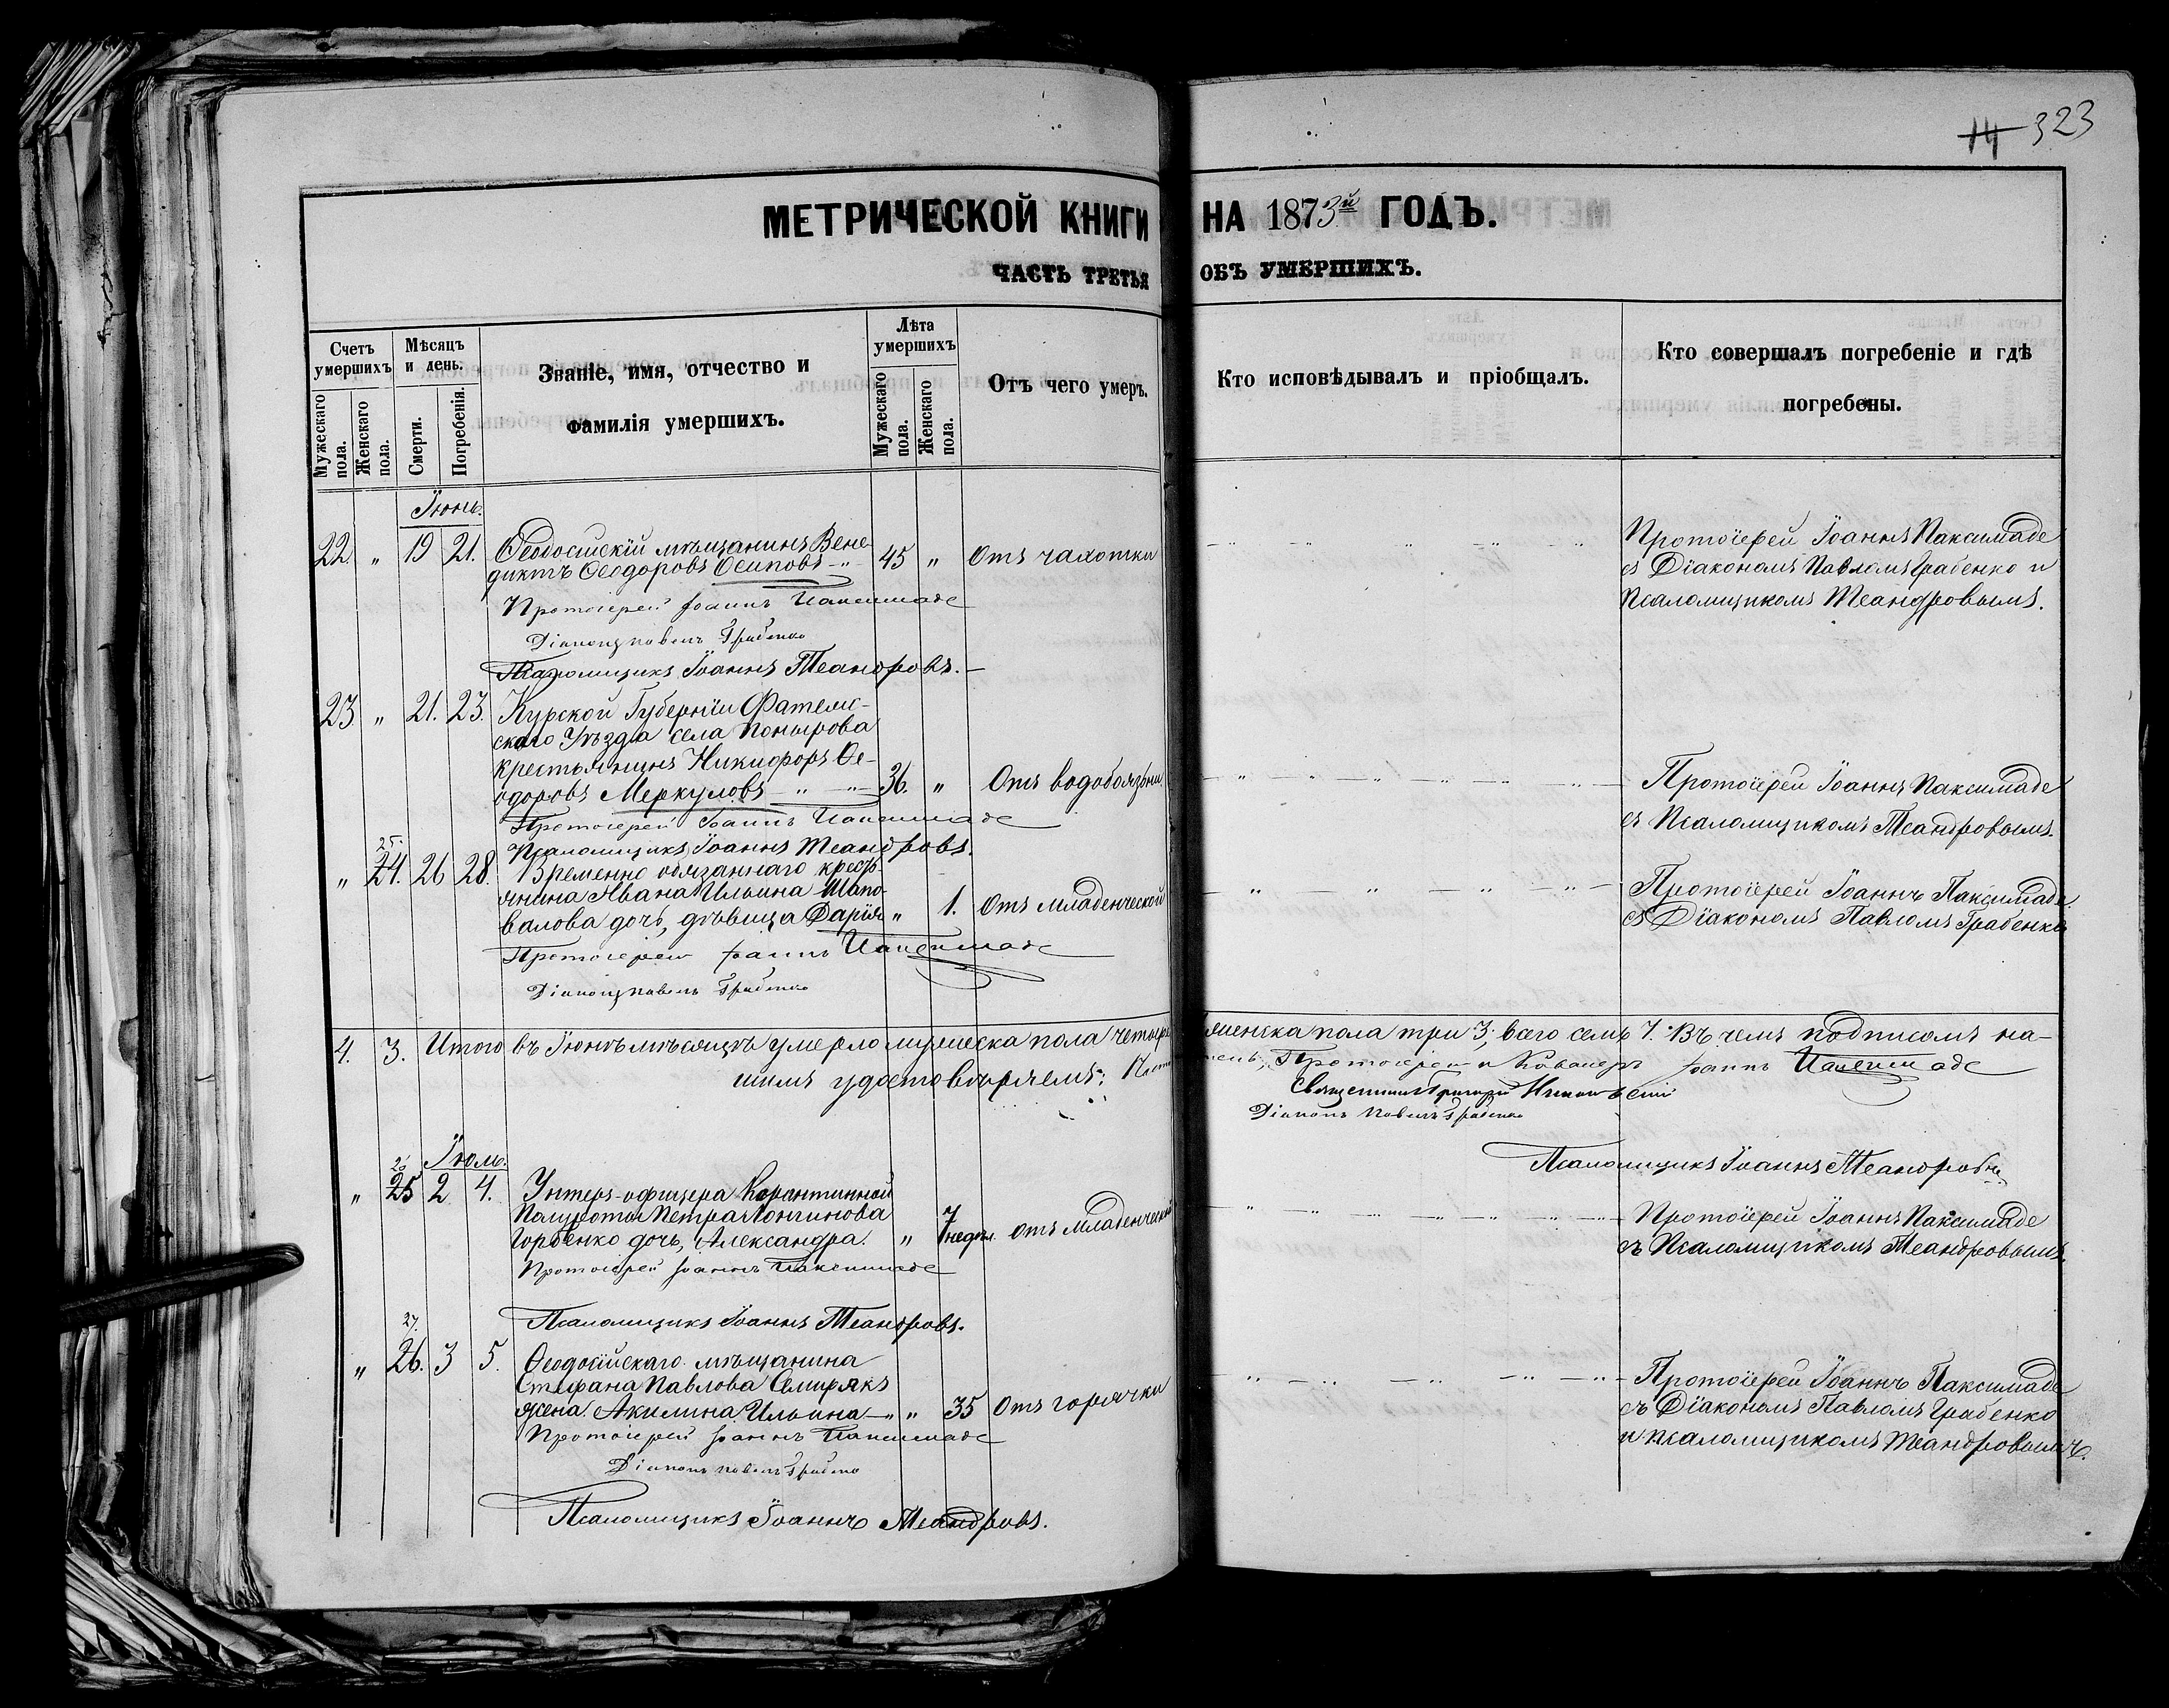 14 323
МЕТРИЧЕСКОЙ КНИГИ НА 1873й ГОДЪ.
ЧАСТЬ ТРЕТЬЯ ОБЪ УМЕРШИХЪ.
Счетъ умершихъ
Мужескаго пола.
Женскаго пола.
Мѣсяцъ и день.
Смерти.
Погребенія.
Званіе, имя, отчество и
фамилія умершихъ.
Лѣта умершихъ
Мужескаго пола.
Женскаго пола.
Отъ чего умеръ.
Кто исповѣдывалъ и пріобщалъ.
Кто совершалъ погребеніе и гдѣ
погребены.
Іюнь.
22. " 19 21. Ѳеодосійскій мѣщанинъ Вене-
диктъ Ѳеодоровъ Осиповъ 45 " Отъ чахотки
Протоіерей Іоаннъ Паксимаде
съ Діакономъ Павломъ Грабенко и
Псаломщикомъ Теандровымъ.
Протоіерей Іоаннъ Паксимаде
Діаконъ Павелъ Грабенко
Псаломщикъ Іоаннъ Теандровъ.
23 " 21. 23. Курской Губерніи Фатеж-
скаго Уѣзда села Понырова
крестьянинъ Никифоръ Ѳе-
одоровъ Меркуловъ 36. " Отъ водобоязни
Протоіерей Іоаннъ Паксимаде
съ Псаломщикомъ Теандровымъ.
Протоіерей Іоаннъ Паксимаде
Псаломщикъ Іоаннъ Теандровъ.
25.
" 24. 26 28. Временно обязаннаго крест-
янина Ивана Ильина Шапо-
валова дочь, дѣвица Дарія " 1. Отъ младенческой
Протоіерей Іоаннъ Паксимаде
съ Діакономъ Павломъ Грабенко
Протоіерей Іоаннъ Паксимаде
Діаконъ Павелъ Грабенко
4. 3. Итого въ Іюнѣ мѣсяцѣ умерло мужеска пола четыре женска пола три 3; всего семь 7. Въ чемъ подписомъ на-
шимъ удостовѣряемъ: Протоіерей и Кавалеръ Іоаннъ Паксимаде
Священникъ Григорій
Діаконъ Павелъ Грабенко
Псаломщикъ Іоаннъ Теандровъ
Іюль.
26
" 25 2 4. Унтеръ-офицера Карантинной
Полуроты Петра Лонгинова
Горбенко дочь, Александра. " 7 недѣл. Отъ младенческой
Протоіерей Іоаннъ Паксимаде
съ Псаломщикомъ Теандровымъ.
Протоіерей Іоаннъ Паксимаде
Псаломщикъ Іоаннъ Теандровъ.
27.
" 26. 3 5. Ѳеодосійскаго мѣщанина
Стефана Павлова Семирякъ
жена. Акилина Ильина " 35 Отъ горячки
Протоіерей Іоаннъ Паксимаде
съ Діакономъ Павломъ Грабенко
и псаломщикомъ Теандровымъ.
Протоіерей Іоаннъ Паксимаде
Діаконъ Павелъ Грабенко
Псаломщикъ Іоаннъ Теандровъ.